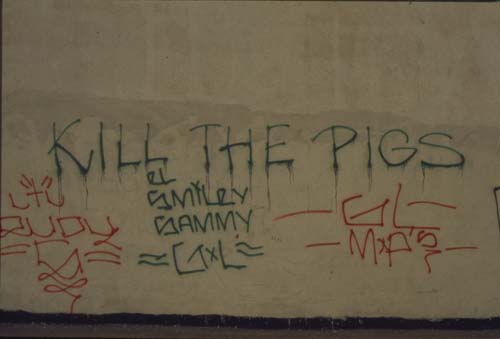 KILL THE PIGS
EL
SMILEY
SAMMY
GXL
GL
MXP'S